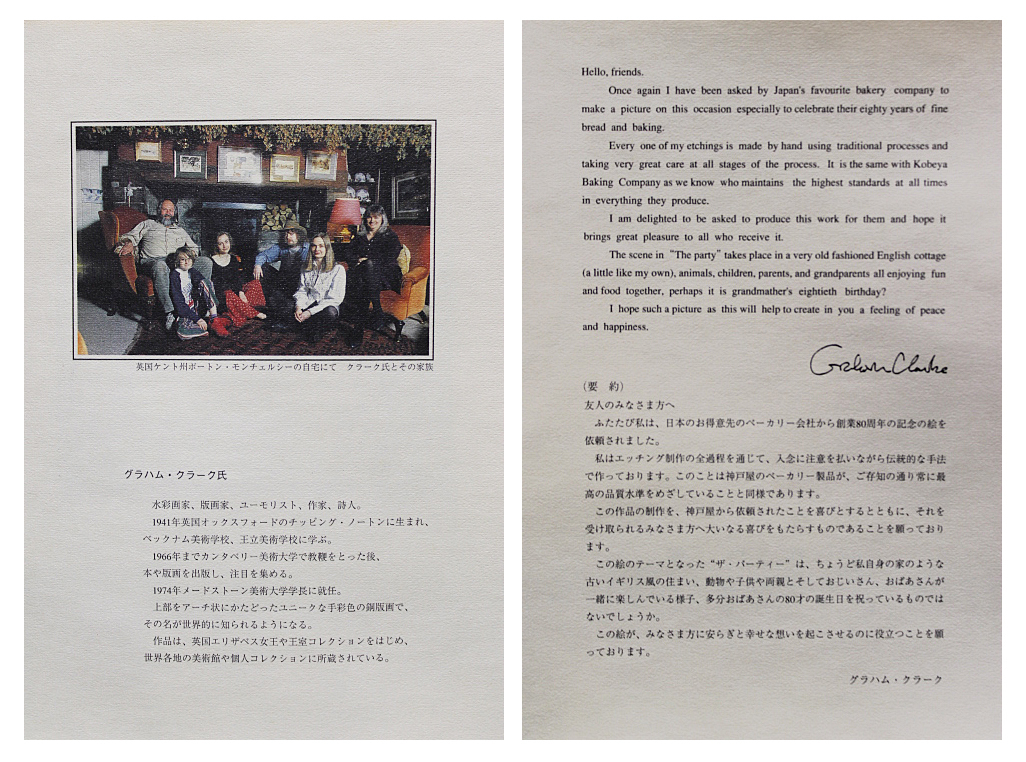 英国ケント州ボートン・モンチェルシーの自宅にて　クラーク氏とその家族
グラハム・クラーク氏
水彩画家、版画家、ユーモリスト、作家、詩人。
1941年英国オックスフォードのチッピング・ノートンに生まれ、
ベックナム美術学校、王立美術学校に学ぶ。
1966年までカンタベリー美術大学で教鞭をとった後、
本や版画を出版し、注目を集める。
1974年メードストーン美術大学学長に就任。
上部をアーチ状にかたどったユニークな手彩色の銅版画で、
その名が世界的に知られるようになる。
作品は、英国エリザベス女王や王室コレクションをはじめ、
世界各地の美術館や個人コレクションに所蔵されている。
Hello, friends.
Once again I have been asked by Japan's favourite bakery company to
make a picture on this occasion especially to celebrate their eighty years of fine
bread and baking.
Every one of my etchings is made by hand using traditional processes and
taking very great care at all stages of the process. It is the same with Kobeya
Baking Company as we know who maintains the highest standards at all times
in everything they produce.
I am delighted to be asked to produce this work for them and hope it
brings great pleasure to all who receive it.
The scene in "The party" takes place in a very old fashioned English cottage
(a little like my own), animals, children, parents, and grandparents all enjoying fun
and food together, perhaps it is grandmather's eightieth birthday?
I hope such a picture as this will help to create in you a feeling of peace
and happiness.
Graham Clarke
（要　約）
友人のみなさま方へ
ふたたび私は、日本のお得意先のベーカリー会社から創業80周年の記念の絵を
依頼されました。
私はエッチング制作の全過程を通じて、入念に注意を払いながら伝統的な手法
で作っております。このことは神戸屋のベーカリー製品が、ご存知の通り常に最
高の品質水準をめざしていることと同様であります。
この作品の制作を、神戸屋から依頼されたことを喜びとするとともに、それを
受け取られるみなさま方へ大いなる喜びをもたらすものであることを願っており
ます。
この絵のテーマとなった“ザ・パーティー”は、ちょうど私自身の家のような
古いイギリス風の住まい、動物や子供や両親とそしておじいさん、おばあさんが
一緒に楽しんでいる様子、多分おばあさんの80才の誕生日を祝っているものでは
ないでしょうか。
この絵が、みなさま方に安らぎと幸せな想いを起こさせるのに役立つことを願
っております。
グラハム・クラーク